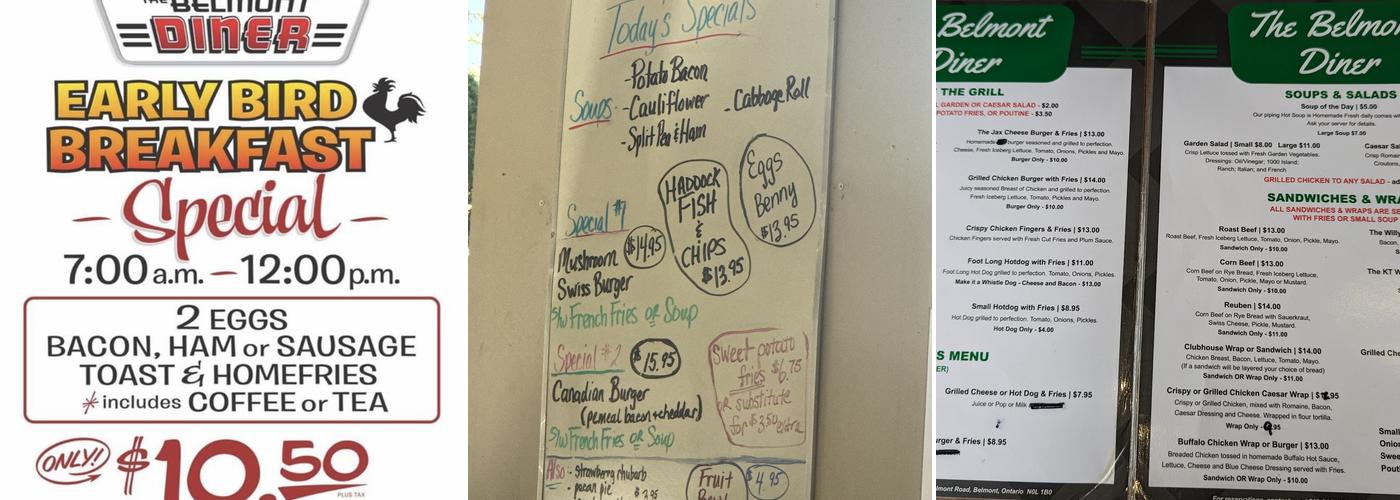 THE BELMONT
DINER
EARLY BIRD
BREAKFAST
Special
7:00 a.m. – 12:00 p.m.
2 EGGS
BACON, HAM or SAUSAGE
TOAST & HOMEFRIES
*includes COFFEE or TEA
ONLY! $10.50
PLUS TAX
Today's Specials
Soups
-Potato Bacon
-Cauliflower
-Split Pea & Ham
-Cabbage Roll
Special #1
Mushroom $14.95
Swiss Burger
s/w French Fries or Soup
HADDOCK
FISH
&
CHIPS
$13.95
Eggs
Benny
$13.95
Special #2 $15.95
Canadian Burger
(pemeal bacon + cheddar)
s/w French Fries or Soup
Sweet potato
fries $6.75
OR substitute
for $3.50 extra
Also:- strawberry rhubarb
- pecan pie
Fruit
$4.95
Belmont
Diner
THE GRILL
GARDEN OR CAESAR SALAD - $2.00
POTATO FRIES, OR POUTINE - $3.50
The Jax Cheese Burger & Fries | $13.00
Homemade burger seasoned and grilled to perfection.
Cheese, Fresh Iceberg Lettuce, Tomato, Onions, Pickles and Mayo.
Burger Only - $10.00
Grilled Chicken Burger with Fries | $14.00
Juicy seasoned Breast of Chicken and grilled to perfection.
Fresh Iceberg Lettuce, Tomato, Pickles and Mayo.
Burger Only - $10.00
Crispy Chicken Fingers & Fries | $13.00
Chicken Fingers served with Fresh Cut Fries and Plum Sauce.
Foot Long Hotdog with Fries | $11.00
Foot Long Hot Dog grilled to perfection. Tomato, Onions, Pickles.
Make it a Whistle Dog - Cheese and Bacon - $13.00
Small Hotdog with Fries | $8.95
Hot Dog grilled to perfection. Tomato, Onions, Pickles.
Hot Dog Only - $4.00
S MENU
ER)
Grilled Cheese or Hot Dog & Fries | $7.95
Juice or Pop or Milk
urger & Fries | $8.95
lmont Road, Belmont, Ontario N0L 1B0
The Belmon
Diner
SOUPS & SALADS
Soup of the Day | $5.00
Our piping Hot Soup is Homemade Fresh daily comes wi
Ask your server for details.
Large Soup $7.00
Garden Salad | Small $8.00 Large $11.00
Crisp Lettuce tossed with Fresh Garden Vegetables.
Dressings: Oil/Vinegar; 1000 Island;
Ranch; Italian; and French
Caesar Sal
Crisp Romai
Croutons,
GRILLED CHICKEN TO ANY SALAD - ad
SANDWICHES & WRA
ALL SANDWICHES & WRAPS ARE SE
WITH FRIES OR SMALL SOUP
Roast Beef | $13.00
Roast Beef, Fresh Iceberg Lettuce, Tomato, Onion, Pickle, Mayo.
Sandwich Only - $10.00
Corn Beef | $13.00
Corn Beef on Rye Bread, Fresh Iceberg Lettuce,
Tomato, Onion, Pickle, Mayo or Mustard.
Sandwich Only - $10.00
Reuben | $14.00
Corn Beef on Rye Bread with Sauerkraut,
Swiss Cheese, Pickle, Mustard.
Sandwich Only - $11.00
Clubhouse Wrap or Sandwich | $14.00
Chicken Breast, Bacon, Lettuce, Tomato, Mayo.
(If a sandwich will be layered your choice of bread)
Sandwich OR Wrap Only - $11.00
Crispy or Grilled Chicken Caesar Wrap
Crispy or Grilled Chicken, mixed with Romaine, Bacon,
Caesar Dressing and Cheese. Wrapped in flour tortilla.
Wrap Only - 9.95
Buffalo Chicken Wrap or Burger | $13.00
Breaded Chicken tossed in homemade Buffalo Hot Sauce,
Lettuce, Cheese and Blue Cheese Dressing served with Fries.
Sandwich OR Wrap Only - $10.00
The Willy
Bacon,
The KT W
Grilled Che
Small
Onion
Swee
Pout